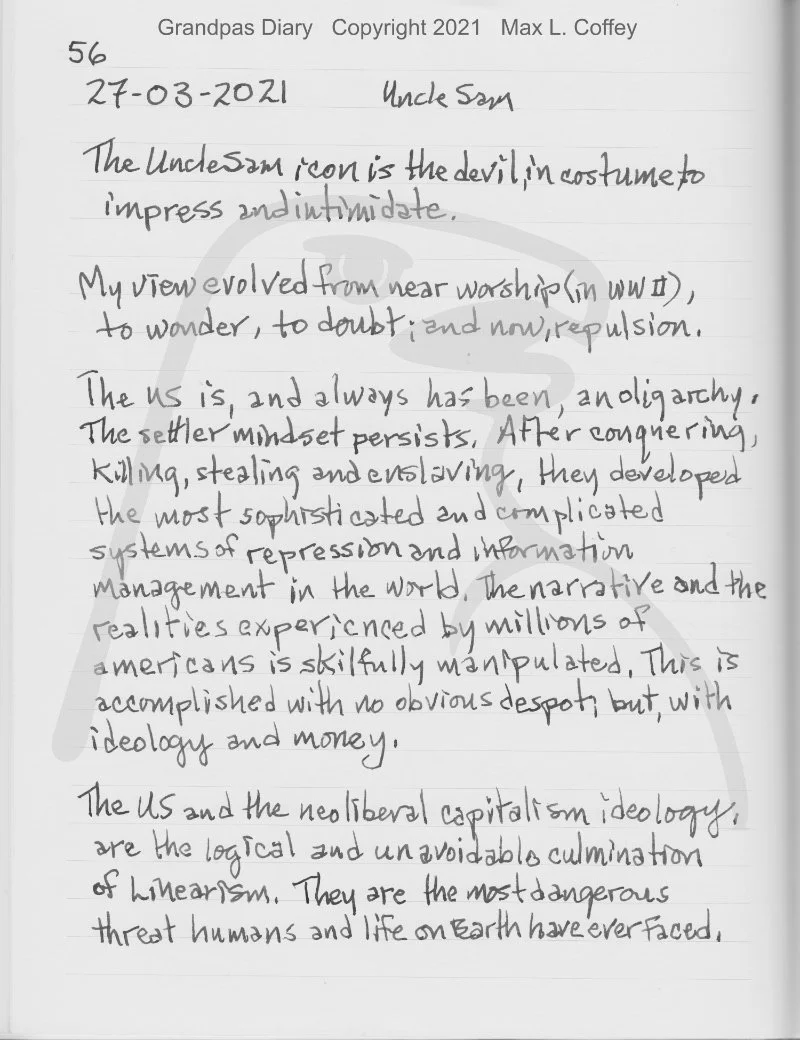 Grandpas Diary Copyright 2021 Max L. Coffey
56
27-03-2021 Uncle Sam
The Uncle Sam icon is the devil, in costume to
impress and intimidate.
My view evolved from near worship (in WW II),
to wonder, to doubt; and now, repulsion.
The US is, and always has been, an oligarchy.
The settler mindset persists. After conquering,
killing, stealing and enslaving, they developed
the most sophisticated and complicated
systems of repression and information
management in the world. The narrative and the
realities experienced by millions of
americans is skilfully manipulated. This is
accomplished with no obvious despot; but, with
ideology and money.
The US and the neoliberal capitalism ideology,
are the logical and unavoidable culmination
of Linearism. They are the most dangerous
threat humans and life on Earth have ever faced.